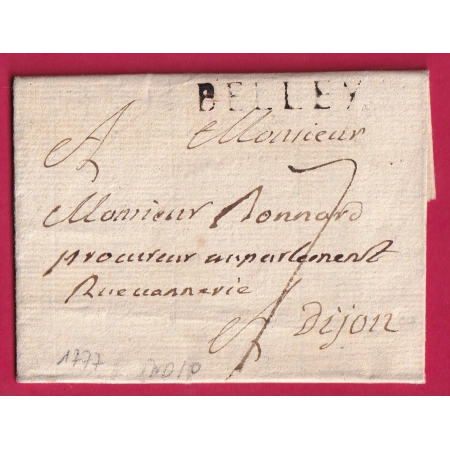 BELLEY
A Monsieur
Monsieur Ronnard
procureur auparlement
Ruevannerie
A Dijon
7
1777